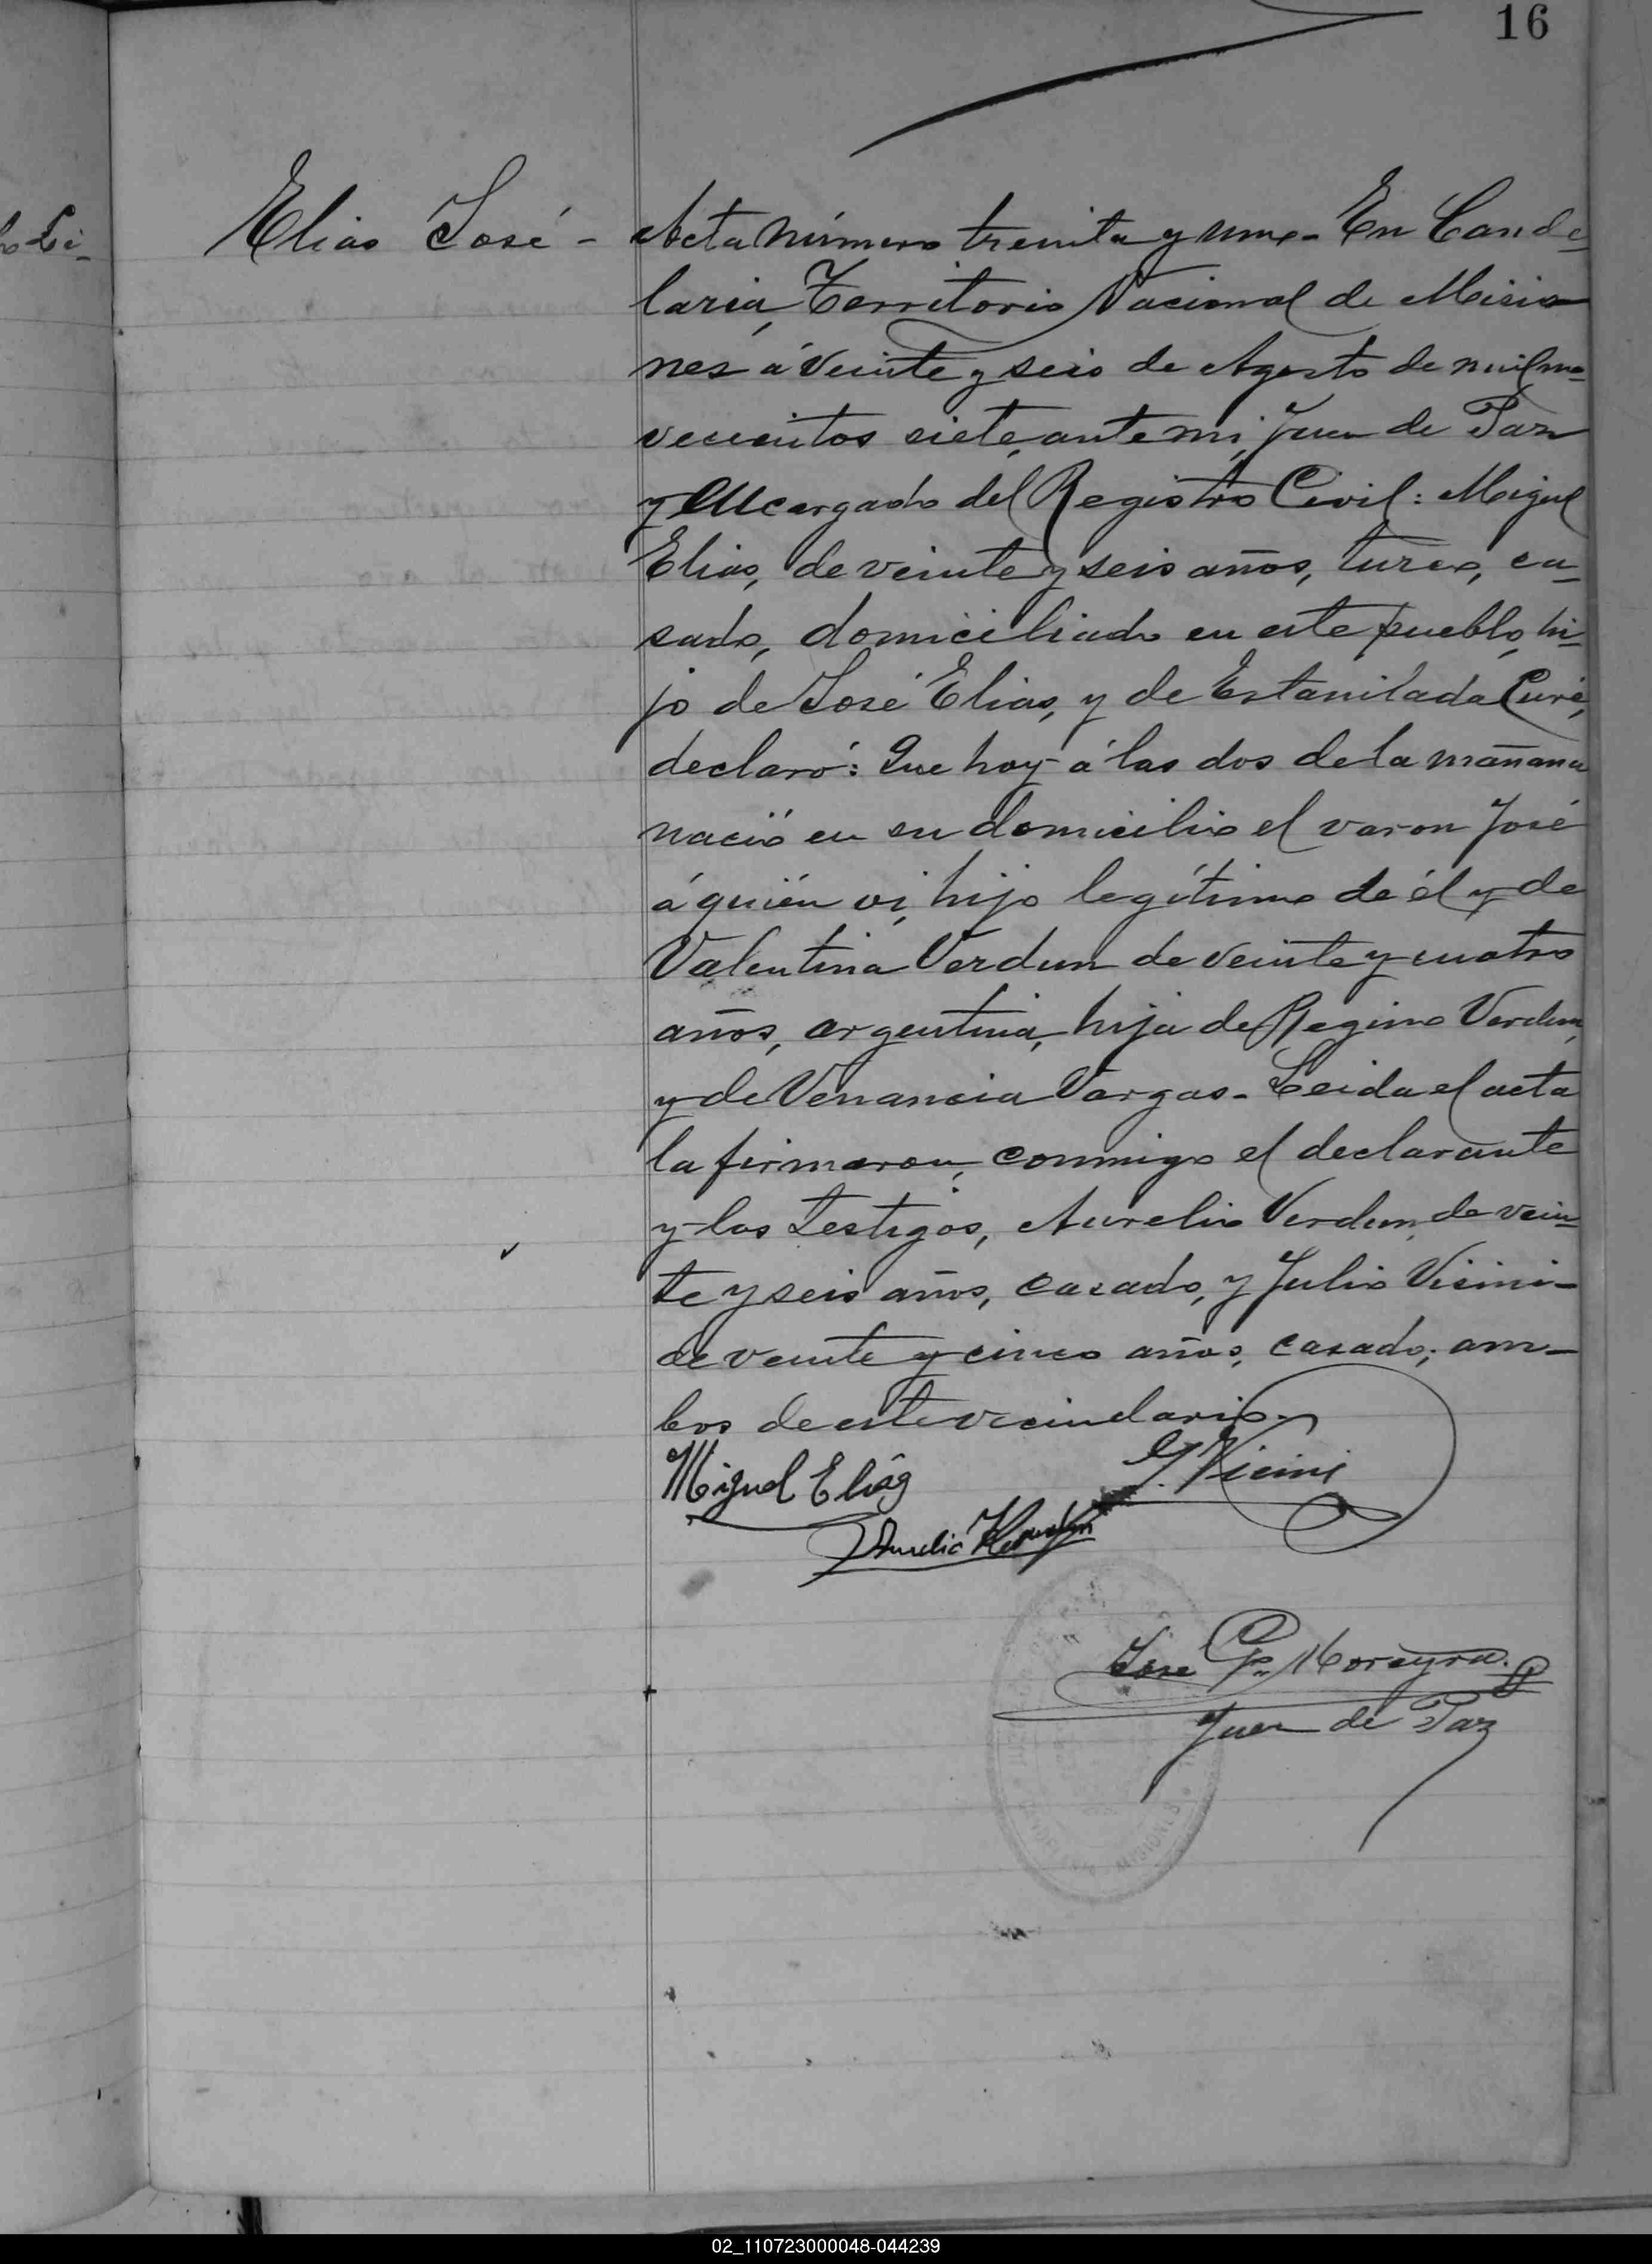 16
Elias José -
Acta número treinta y uno - En Cande-
laria, Territorio Nacional de Misio-
nes á veinte y seis de Agosto de mil no-
vecientos siete, ante mi, Juez de Paz
y encargado del Registro Civil: Miguel
Elias, de veinte y seis años, turco, ca-
sado, domiciliado en este pueblo, hi-
jo de José Elias, y de Estanilada Curé,
declaró: Que hoy á las dos de la mañana
nació en su domicilio el varon José
á quién vi, hijo legítimo de él y de
Valentina Verdun de veinte y cuatro
años, argentina, hija de Regino Verdun,
y de Venancia Vargas - Leida el acta
la firmaron, conmigo el declarante
y los testigos, Aurelio Verdun, de vein-
te y seis años, casado, y Julio Vicini -
de veinte y cinco años, casado; am-
bos de este vecindario.
Miguel Eliás
J. Vicini
Aurelio Verdun
Jose Moreyra.
Juez de Paz
MISIONES
02_110723000048-044239